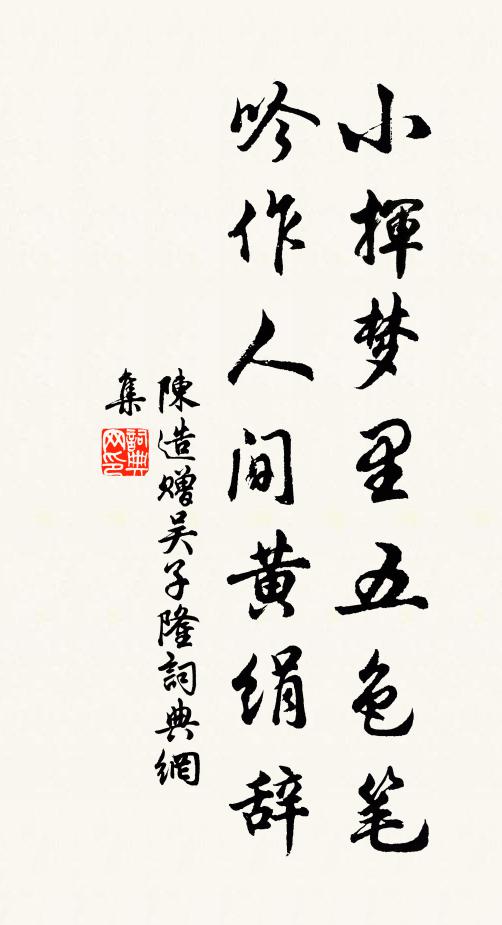 小揮梦里五色笔
吟作人间黄绢辞
陳造赠吴子隆詞典網
集
詞典
网印